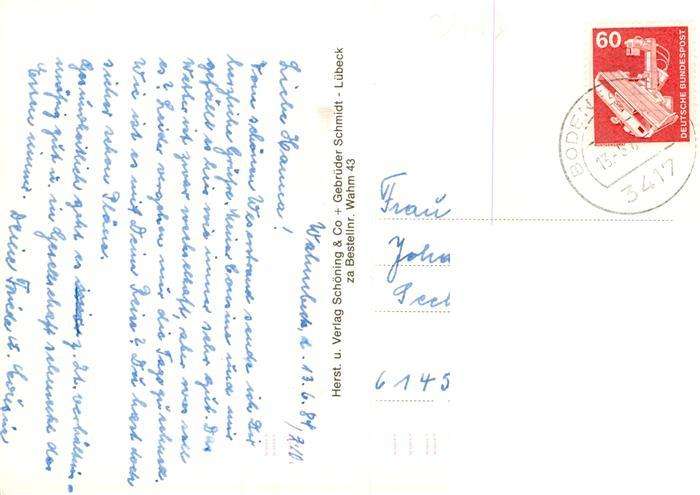 Wahmbeck, d. 13.6.84
Liebe Hanna!
Vom schönen Weserstrand sende ich Dir
herzliche Grüße. Meiner Cousine und mir
gefällt es hier wie immer sehr gut. Das
Wetter ist zwar wechselhaft, aber was soll
es? Leider vergehen mir die Tage zu schnell.
Wie ist es mit Deiner Reise? Du hast doch
sicher schon Pläne.
Gesundheitlich geht es z. Zt. verhältnis-
mäßig gut u. in Gesellschaft schmeckt das
Essen immer. Deine Frieda u. Cousine
Herst. u. Verlag Schöning & Co + Gebrüder Schmidt - Lübeck
za Bestellnr. Wahm 43
60
DEUTSCHE BUNDESPOST
BODEN
13.-6.
3417
Frau
Joha
6145